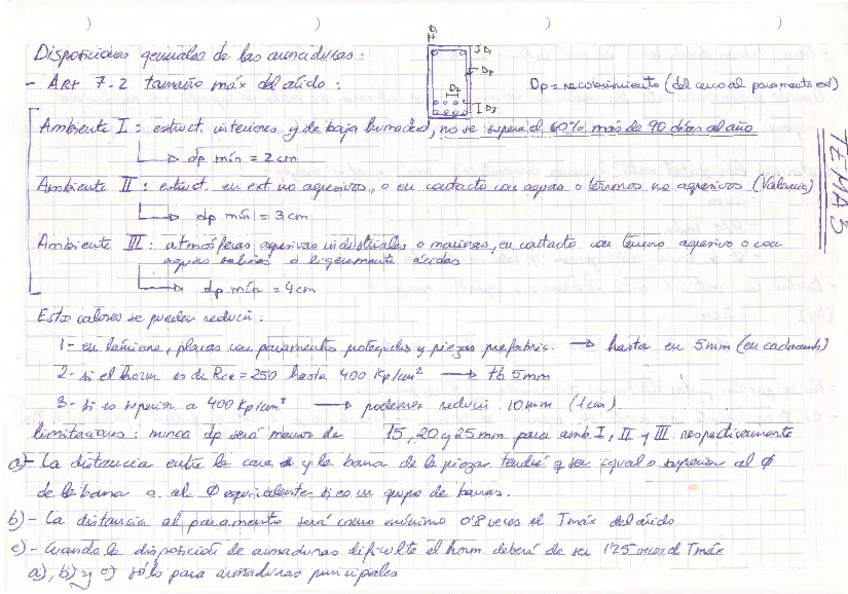 Disposiciones generales de las armaduras:
- Art 7.2 tamaño máx del árido:
D1
D1
D2
D2
D3
Dp = recubrimiento (del cerco al paramento ext)
TEMA 3
Ambiente I: estruct. interiores y de baja humedad, no se supera el 60% más de 90 días al año
dp mín = 2 cm
Ambiente II: estruct. en ext. no agresivos, o en contacto con aguas o terrenos no agresivos (Valencia)
dp mín = 3 cm
Ambiente III: atmósferas agresivas industriales o marinas, en contacto con terreno agresivo o con
aguas salinas o ligeramente ácidas
dp mín = 4 cm
Estos valores se pueden reducir:
1- en láminas, placas con paramentos protegidos y piezas prefabric. → hasta en 5 mm (en cada amb)
2- si el horm es de Rck = 250 hasta 400 Kp/cm² → tb 5 mm
3- si es superior a 400 Kp/cm² → podemos reducir 10 mm (1 cm)
limitaciones: nunca dp será menor de 15, 20 y 25 mm para amb I, II y III respectivamente
a)- La distancia entre la cara y la barra de la pieza tendrá q ser igual o superior al Ø
de la barra o al Ø equivalente si es un grupo de barras.
b)- La distancia al paramento será como mínimo 0'8 veces el Tmáx del árido
c)- Cuando la disposición de armaduras dificulte el horm. deberá de ser 1'25 veces el Tmáx
a), b) y c) sólo para armaduras principales